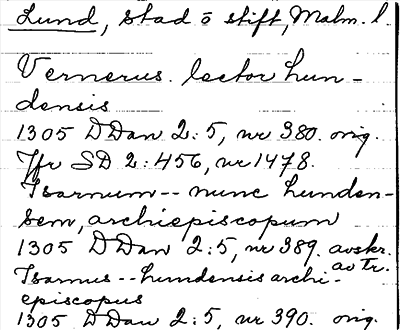 Lund, stad o stift, Malm. l
Vernerus. lector lun-
densis
1305 DDan 2:5, nr 380. orig.
Jfr SD 2:456, nr 1478.
Isarnum -- nunc lunden-
sem, archiepiscopum
1305 DDan 2:5, nr 389. avskr.
av tr.
Isarnus -- lundensis archi-
episcopus
1305 DDan 2:5, nr 390. orig.